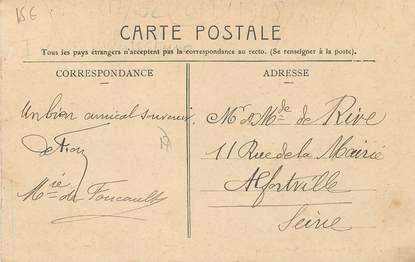 15 E
CARTE POSTALE
Tous les pays étrangers n'acceptent pas la correspondance au recto. (Se renseigner à la poste).
CORRESPONDANCE
ADRESSE
Un bien amical souvenir
de
Mie de Foucault
Mr & Mde de Rive
11 Rue de la Mairie
Alfortville
Seine